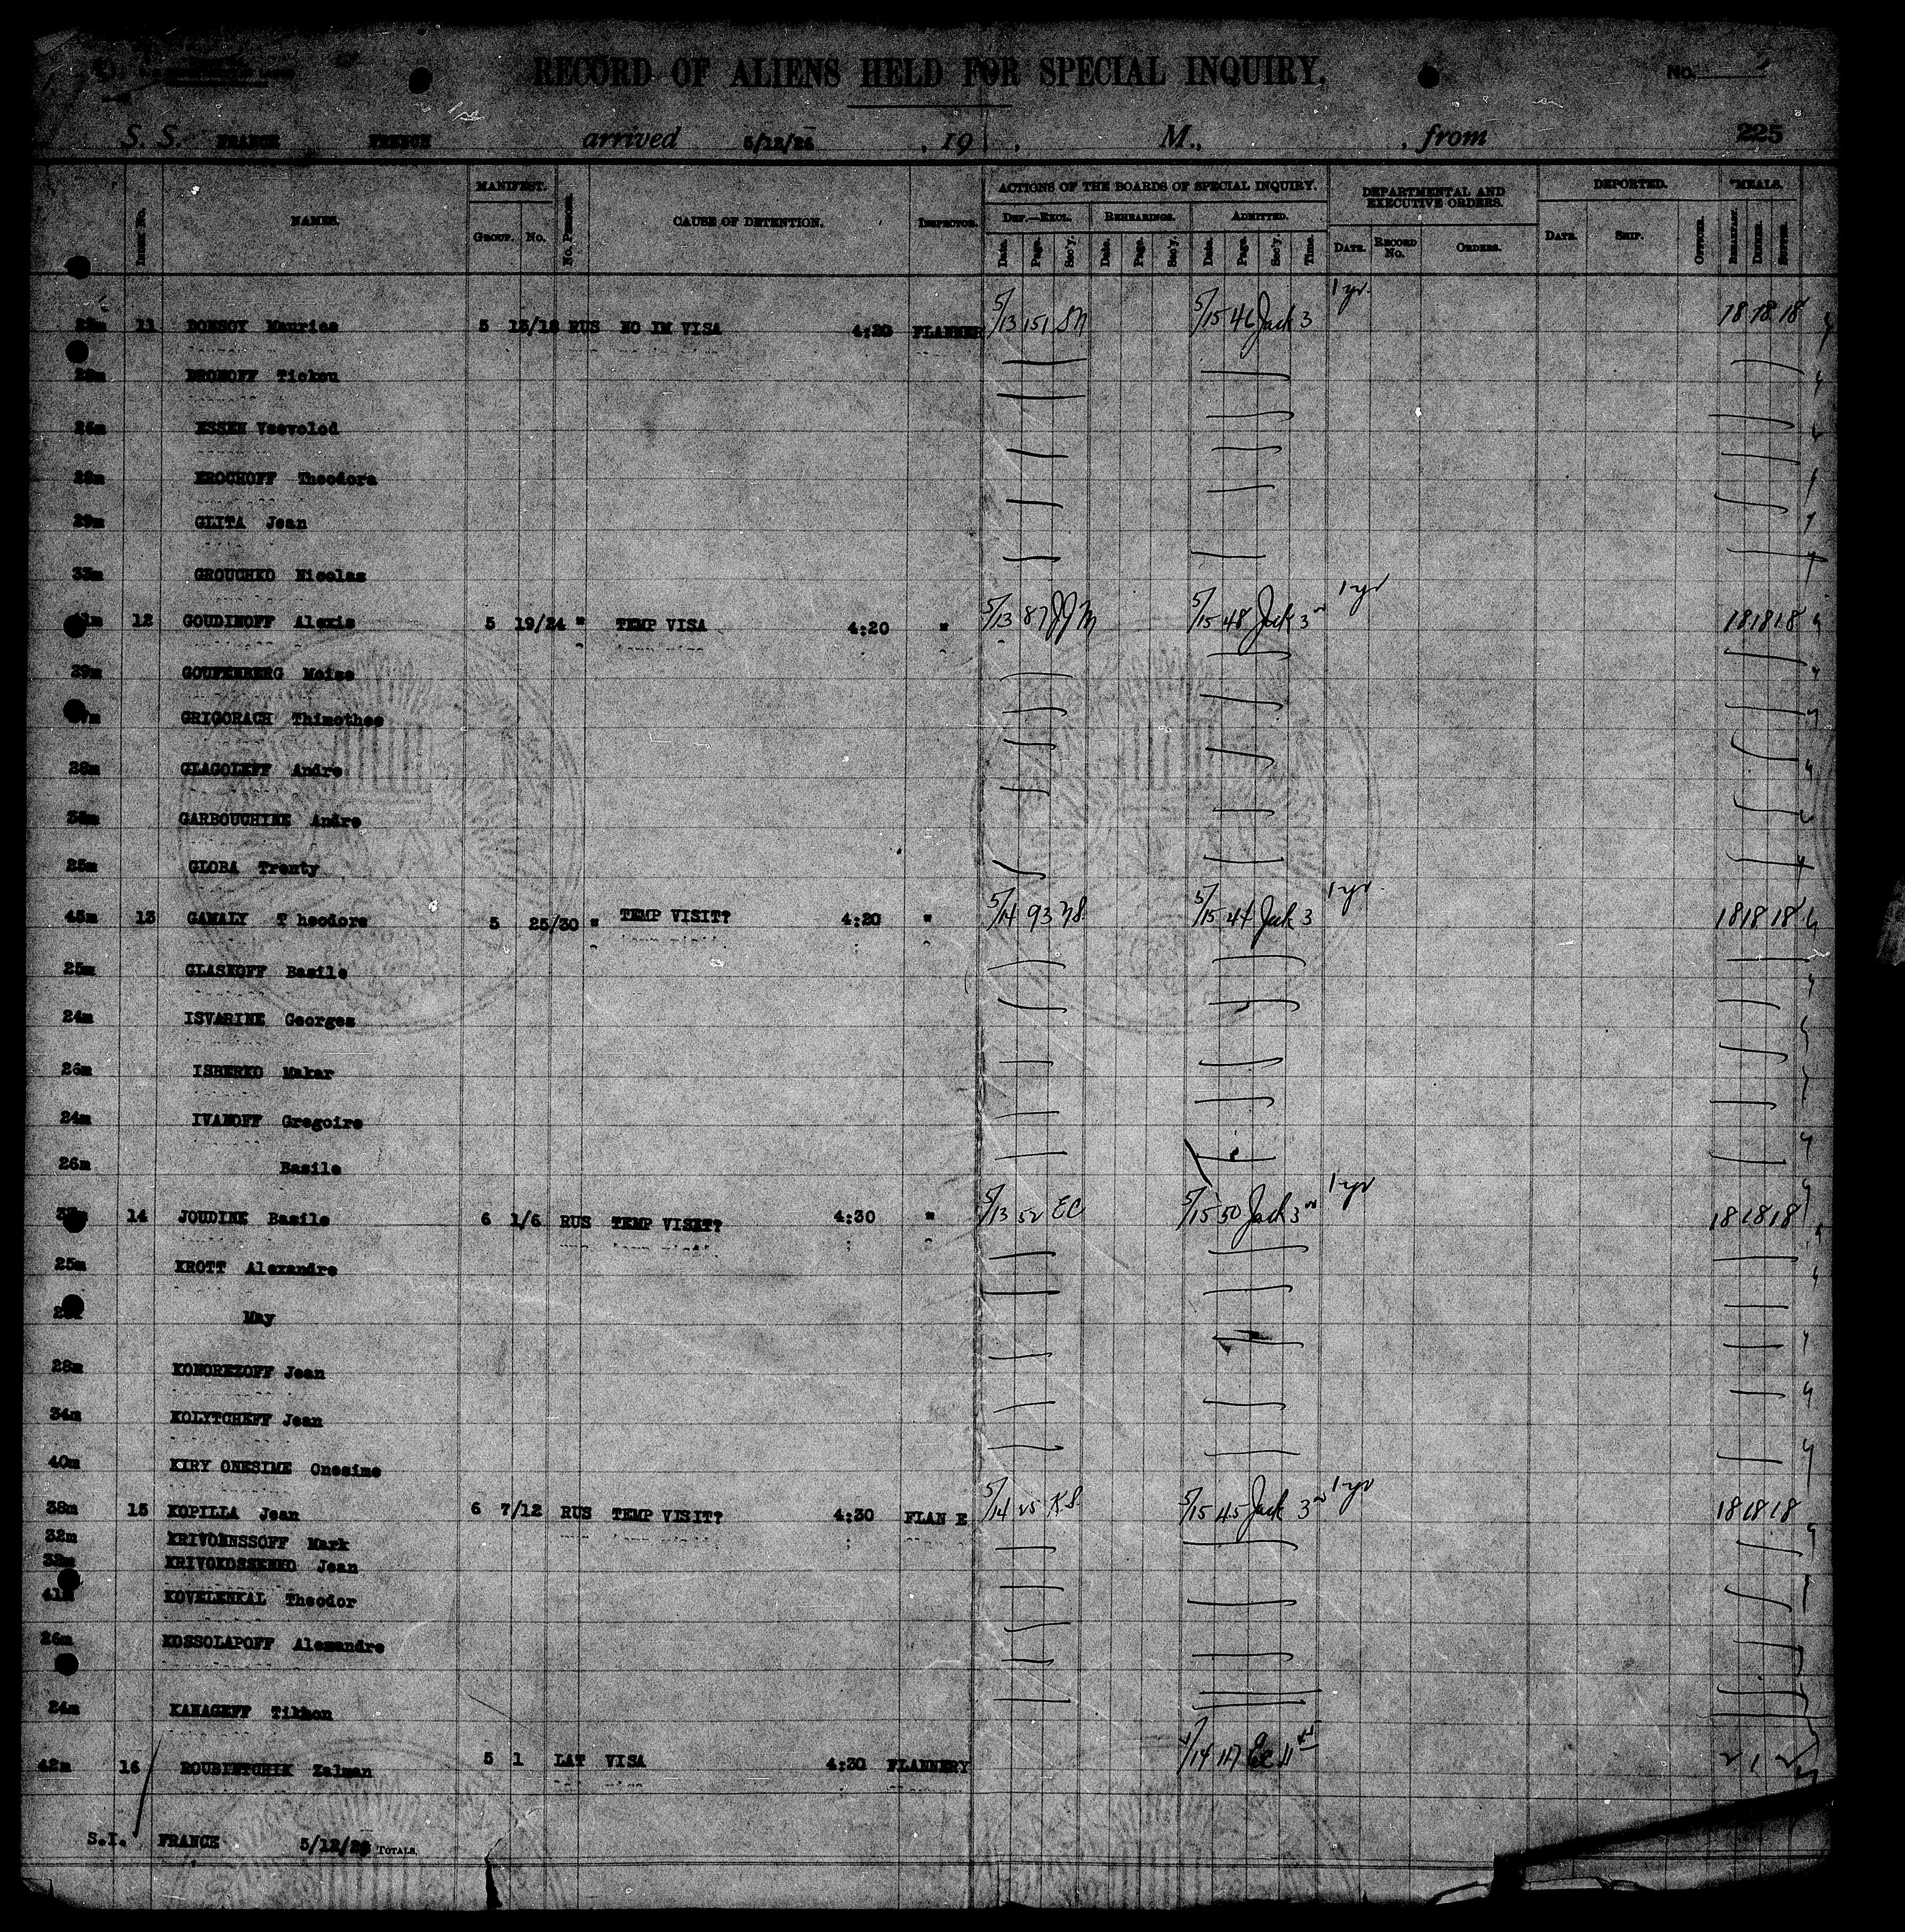 RECORD OF ALIENS HELD FOR SPECIAL INQUIRY.
No.
S. S. FRANCE FRENCH arrived 5/12/26, 19 , M., , from 225
MANIFEST. ACTIONS OF THE BOARDS OF SPECIAL INQUIRY. DEPARTMENTAL AND EXECUTIVE ORDERS. DEPORTED. MEALS.
Index No. NAMES. Group. No. No. Persons. CAUSE OF DETENTION. Inspector. Def.—Excl. Rehearings. Admitted.
Date. Page. Sec'y. Date. Page. Sec'y. Date. Page. Sec'y. Time. Date. Record No. Orders. Date. Ship. Officer. Breakfast. Dinner. Supper.
11 Maurice 5 13/18 RUS NO IM VISA 4:20 5/13 151 SM 5/15 46 Jack 3 1 yr. 18 18 18
BRONOFF
26m ESSEN Vsevolod
28m EROCHOFF Theodora
29m GLITA Jean
33m GROUCHKO Nicolas
12 GOUDINOFF Alexis 5 19/24 " TEMP VISA 4:20 " 5/13 87 JJM 5/15 48 Jack 3 1 yr 18 18 18
39m Moise
GRIGORACH Thimothee
28m GLAGOLEFF Andre
GARBOUCHINE Andre
25m GLOBA Trenty
45m 13 GAMALY T heodore 5 25/30 " TEMP VISIT? 4:20 " 5/14 93 5/15 44 Jack 3 1 yr. 18 18 18
25m GLASKOFF Basile
24m ISVARINE Georges
26m ISBERKO Makar
24m IVANOFF Gregoire
26m Basile
14 JOUDINE Basile 6 1/6 RUS TEMP VISIT? 4:30 " 5/13 52 EC 5/15 50 Jack 3 1 yr 18 18 18
25m KROTT Alexandre
May
28m KONOREZOFF Jean
34m KOLYTCHEFF Jean
40m KIRY ONESIME Onesime
38m 15 KOPILLA Jean 6 7/12 RUS TEMP VISIT? 4:30 FLAN E 5/14 25 KS 5/15 45 Jack 3 1 yr 18 18 18
32m KRIVOENSSOFF Mark
KRIVOKOSSENKO Jean
41m KOVELENKAL Theodor
26m KOSSOLAPOFF Alexandre
24m KANAGEFF Tikhon
42m 16 ROUBINTCHIK Zalman 5 1 LAT VISA 4:30 FLANNERY 5/14 117 EC 11 2 1 2
S.I. FRANCE 5/12/26 Totals.